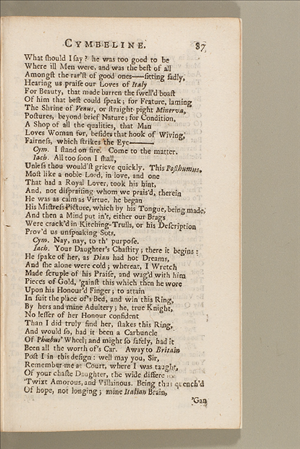 CYMBELINE. 87
What should I say? he was too good to be
Where ill Men were, and was the best of all
Amongst the rar'st of good ones——sitting sadly,
Hearing us praise our Loves of Italy
For Beauty, that made barren the swell'd boast
Of him that best could speak; for Feature, laming
The Shrine of Venus, or straight-pight Minerva,
Postures, beyond brief Nature; for Condition,
A Shop of all the qualities, that Man
Loves Woman for, besides that hook of Wiving,
Fairness, which strikes the Eye———
Cym. I stand on fire. Come to the matter.
Iach. All too soon I shall,
Unless thou would'st grieve quickly. This Posthumus,
Most like a noble Lord, in love, and one
That had a Royal Lover, took his hint,
And, not dispraising whom we prais'd, therein
He was as calm as Virtue, he began
His Mistress Picture, which by his Tongue, being made,
And then a Mind put in't, either our Brags
Were crack'd in Kitching-Trulls, or his Description
Prov'd us unspeaking Sots.
Cym. Nay, nay, to th' purpose.
Iach. Your Daughter's Chastity; there it begins:
He spake of her, as Dian had hot Dreams,
And she alone were cold; whereat, I Wretch
Made scruple of his Praise, and wag'd with him
Pieces of Gold, 'gainst this which then he wore
Upon his Honour'd Finger; to attain
In suit the place of's Bed, and win this Ring,
By hers and mine Adultery; he, true Knight,
No lesser of her Honour confident
Than I did truly find her, stakes this Ring,
And would so, had it been a Carbuncle
Of Phœbus' Wheel; and might so safely, had it
Been all the worth of's Car. Away to Britain
Post I in this design: well may you, Sir,
Remember me at Court, where I was taught,
Of your chaste Daughter, the wide difference
'Twixt Amorous, and Villainous. Being thus quench'd
Of hope, not longing; mine Italian Brain,
'Gan